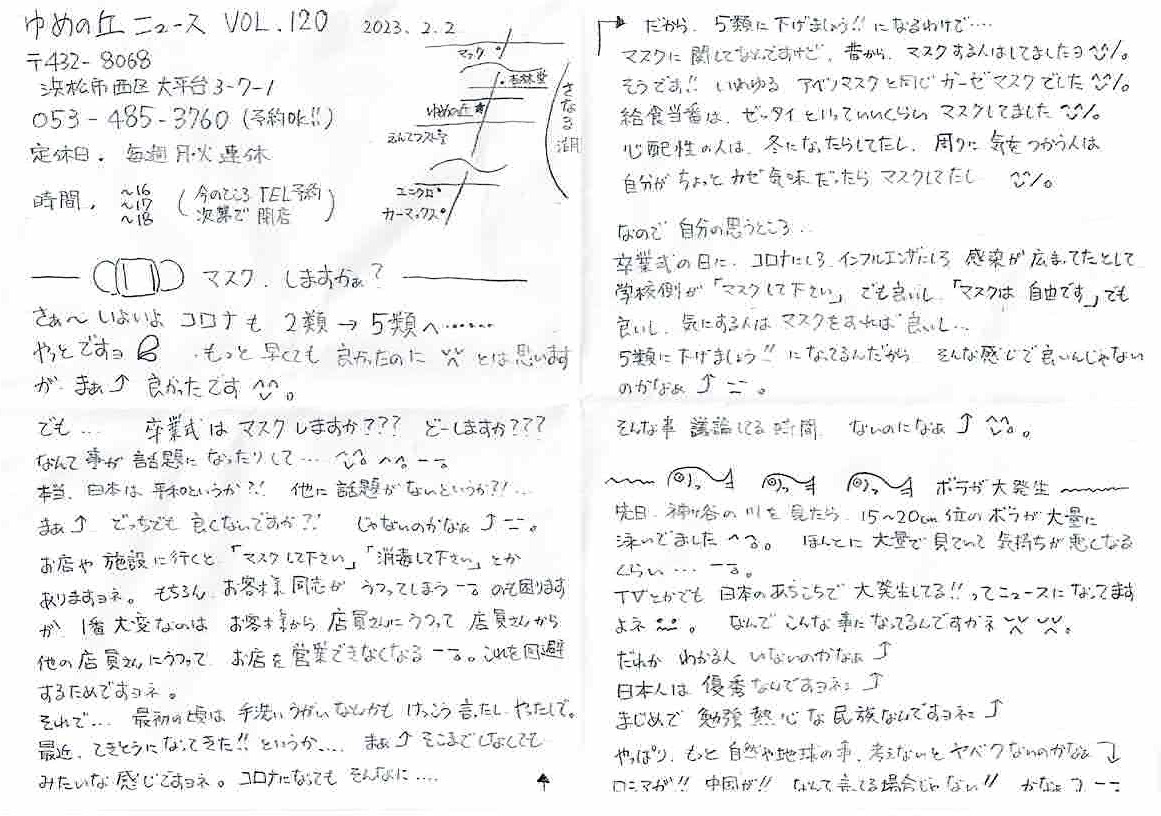 ゆめの丘ニュース VOL.120 2023.2.2
〒432-8068
浜松市西区大平台3-7-1
053-485-3760 (予約OK!!)
定休日. 毎週月・火連休
時間. ~16 ~17 ~18 (今のところTEL予約次第で開店)
マック
杏林堂
ゆめの丘★
さなる湖
ユニクロ
カーマックス
マスク.しますかぁ?
さぁ~いよいよ コロナも 2類→5類へ……
やっとですョ もっと早くても 良かったのに とは思います
が.まぁ↑ 良かったです ^^。
でも… 卒業式は マスクしますか??? どーしますか???
なんて事が 話題に なったりして…
本当、日本は 平和というか?! 他に話題がないというか?!…
まぁ↑ どっちでも 良くないですか?! じゃないのかなぁ↑
お店や 施設に行くと 「マスクして下さい」「消毒して下さい」とか
ありますョネ。 もちろん.お客様同志が うつってしまう のも困ります
が 1番大変なのは お客様から 店員さんにうつって 店員さんから
他の店員さんにうつって お店を営業できなくなる 。これを回避
するためですョネ。
それで… 最初の頃は 手洗いうがいなんかも けっこう言ったし やったしで。
最近、てきとうになってきた!! というか…. まぁ↑ そこまでしなくても
みたいな 感じですョネ。コロナになっても そんなに….
だから、5類に下げましょう!! になるわけで….
マスクに関してなんですけど、昔から、マスクする人はしてましたョ
そうです!! いわゆる アベノマスクと同じ ガーゼマスクでした
給食当番は、ゼッタイといっていいくらい マスクしてました
心配性の人は、冬になったらしてたし、周りに 気をつかう人は
自分がちょっとカゼ気味だったら マスクしてたし
なので 自分の思うところ..
卒業式の日に、コロナにしろ インフルエンザにしろ 感染が広まってたとして
学校側が「マスクして下さい」でも良いし「マスクは 自由です」でも
良いし、気にする人は マスクをすれば 良いし…
5類に下げましょう!! になってるんだから そんな感じで良いんじゃない
のかなぁ↑ 。
そんな事 議論してる時間 ないのになぁ↑ 。
ボラが大発生
先日、神ヶ谷の川を見たら、15~20cm位のボラが大量に
泳いでました 。 ほんとに 大量で見ていて 気持ちが悪くなる
くらい…
TVとかでも 日本のあちこちで 大発生してる!!ってニュースになってます
よネ 。 なんで こんな事になってるんですかネ
だれか わかる人 いないのかなぁ↑
日本人は 優秀なんですョネ↑
まじめで 勉強熱心な民族なんですョネ↑
やっぱり、もっと自然や地球の事、考えないと ヤベクないのかなぁ
ロシアが!! 中国が!! なんて言ってる場合じゃない!! かなぁ